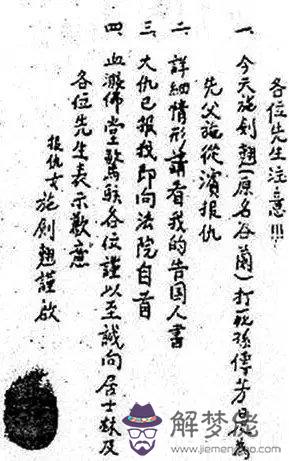 各位先生注意!!!
一、今天施劍翹(原名谷蘭)打死孫傳芳是為
先父施從濱報仇
二、詳細情形請看我的告国人書
三、大仇已報我即向法院自首
四、血濺佛堂驚駭各位謹以至誠向居士林及
各位先生表示歉意
报仇女施劍翹謹啟
解梦佬
jiemenglao.com